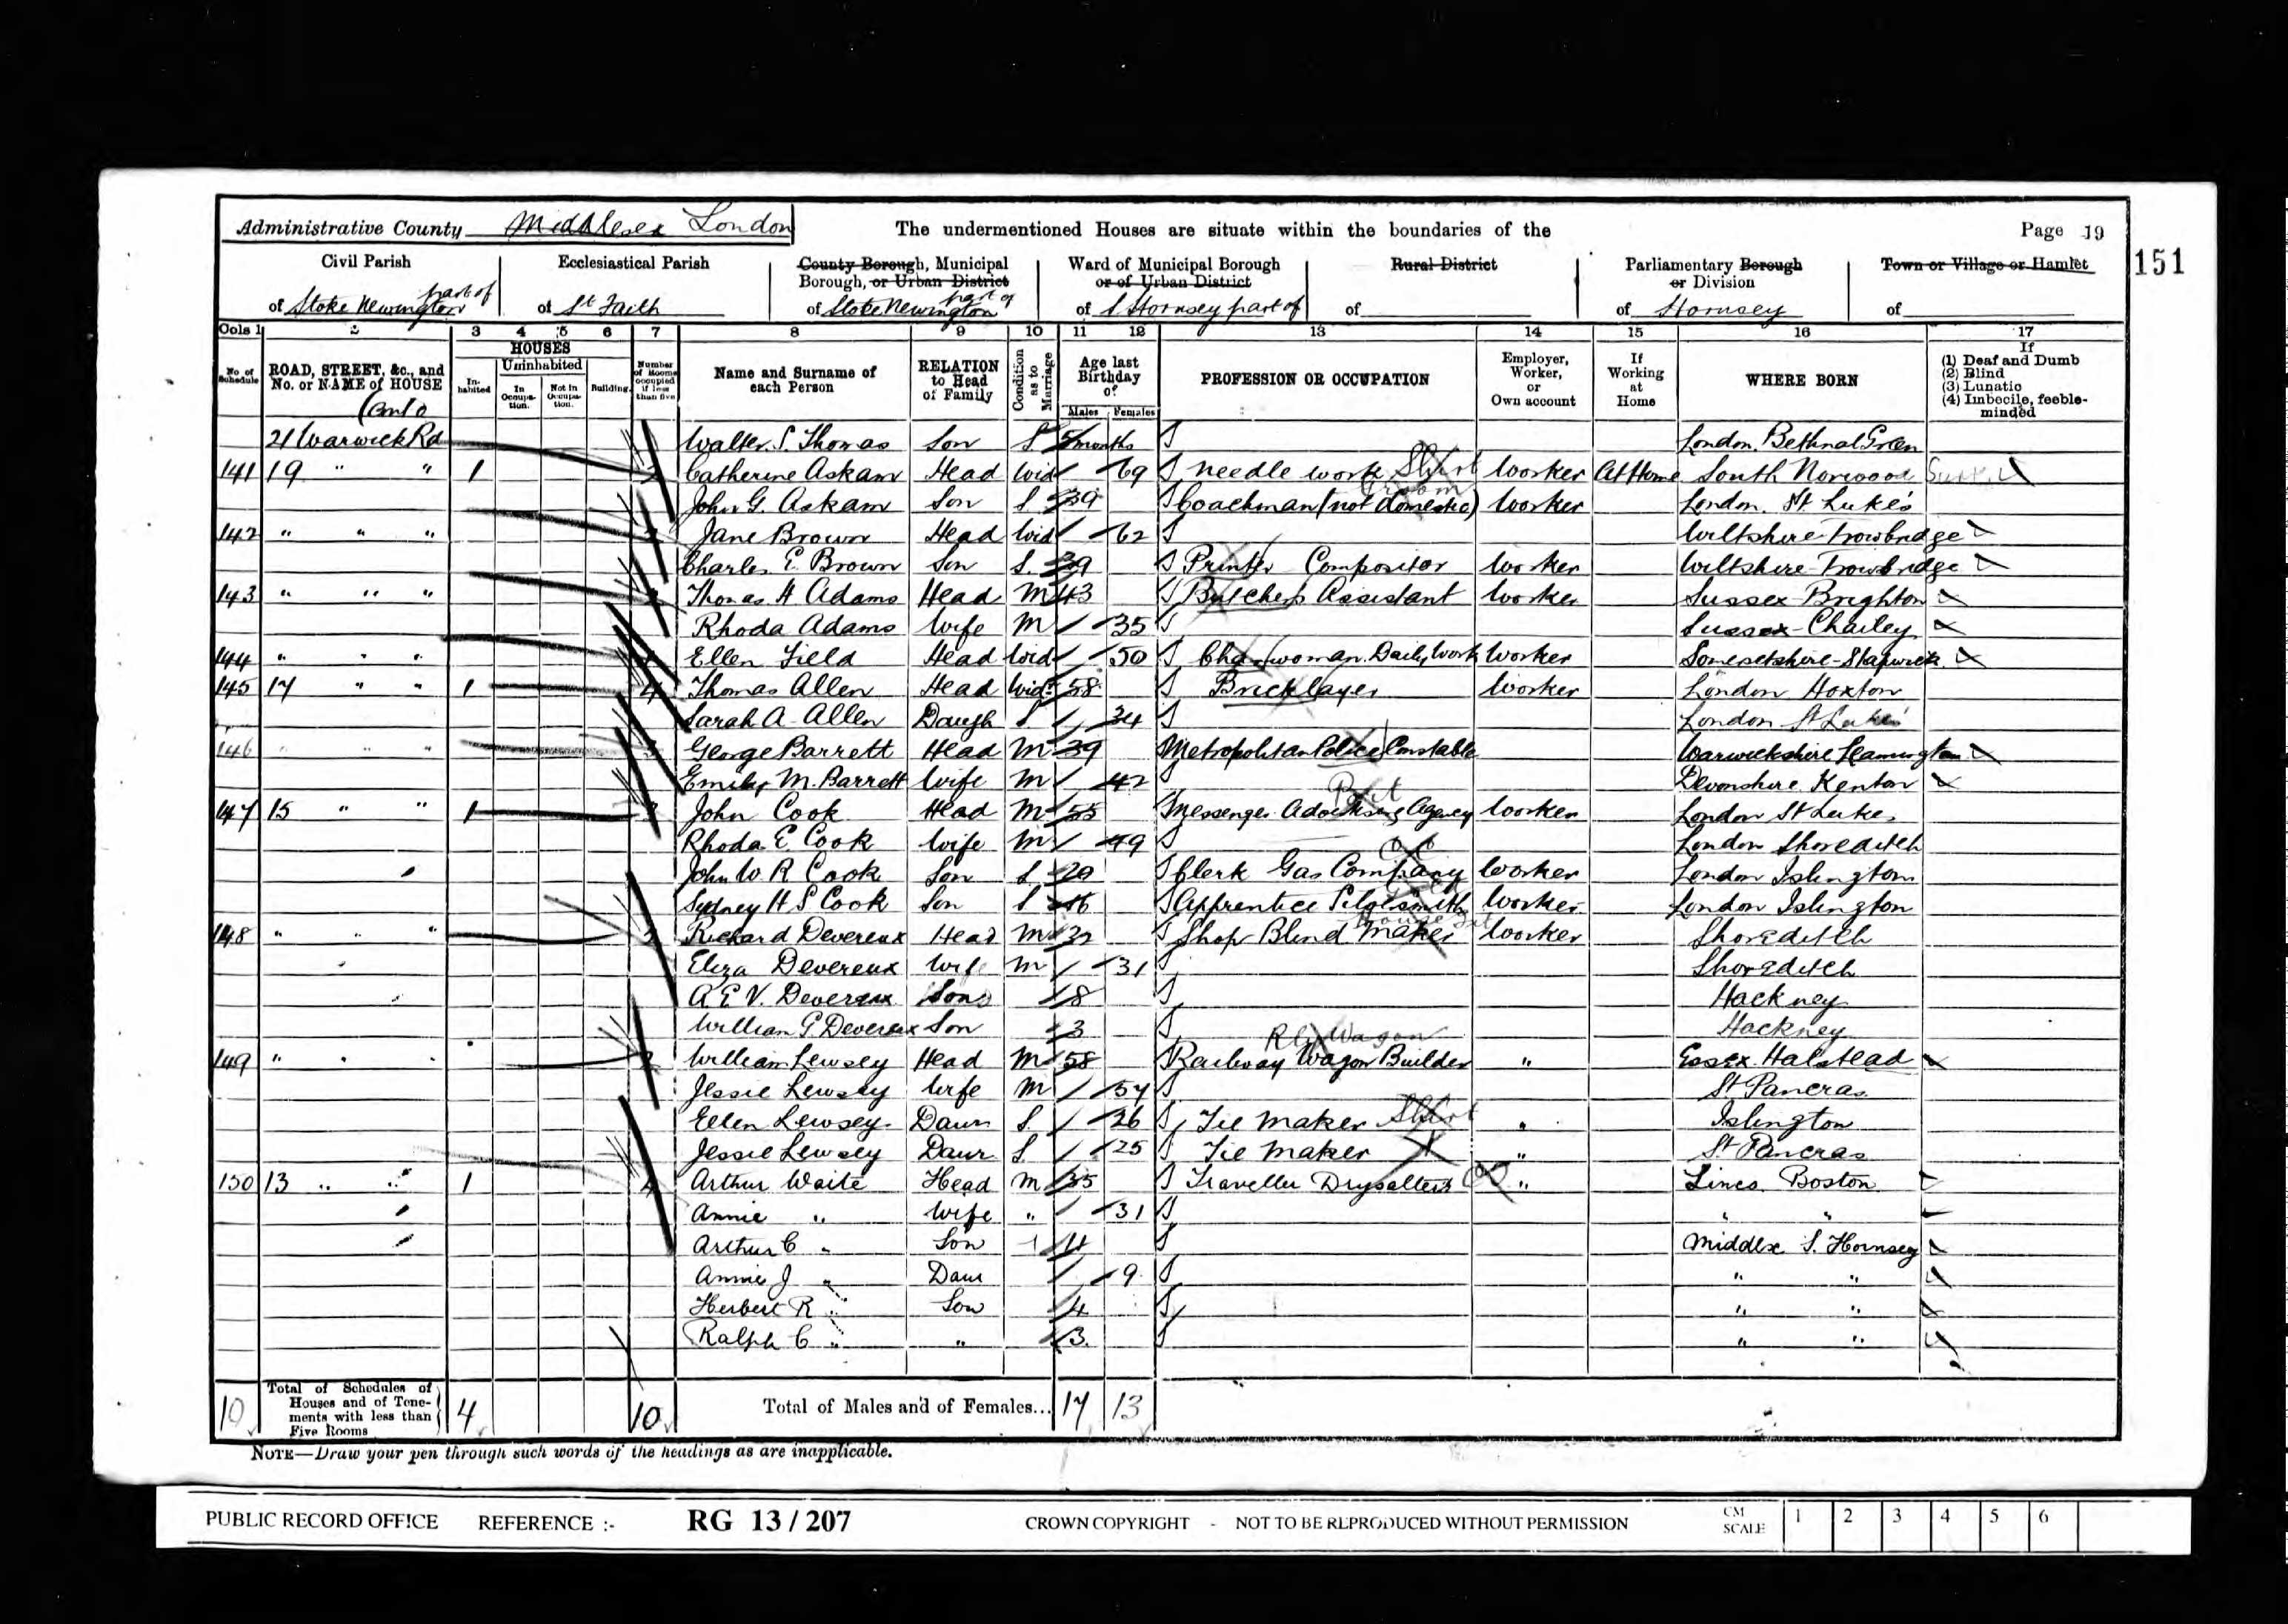 Administrative County Middlesex London The undermentioned Houses are situate within the boundaries of the Page 19
151
Civil Parish Ecclesiastical Parish County Borough, Municipal Borough, or Urban District Ward of Municipal Borough or of Urban District Rural District Parliamentary Borough or Division Town or Village or Hamlet
of Stoke Newington part of of St Faith of Stoke Newington part of of S. Hornsey part of of of Hornsey of
Cols 1 2 3 4 5 6 7 8 9 10 11 12 13 14 15 16 17
No. of Schedule ROAD, STREET, &c., and No. or NAME of HOUSE HOUSES Inhabited Uninhabited In Occupation. Not in Occupation. Building. Number of Rooms occupied if less than five Name and Surname of each Person RELATION to Head of Family Condition as to Marriage Age last Birthday of Males Females PROFESSION OR OCCUPATION Employer, Worker, or Own account If Working at Home WHERE BORN If (1) Deaf and Dumb (2) Blind (3) Lunatic (4) Imbecile, feeble-minded
21 Warwick Rd Walter S. Thomas Son S 5 months London. Bethnal Green
141 19 " " 1 2 Catherine Askam Head Wid 69 needle work Shirt Worker At Home South Norwood
John G. Askam Son S. 39 Coachman (not domestic) Groom Worker London. St Luke's
142 " " " Jane Brown Head Wid 62 Wiltshire Trowbridge
Charles E Brown Son S. 39 Printer Compositor Worker Wiltshire Trowbridge
143 " " " Thomas H Adams Head M 43 Butchers Assistant Worker Sussex Brighton
Rhoda Adams Wife M 35 Sussex Chailey
144 " " " Ellen Field Head Wid 50 Charwoman Daily Work Worker Somersetshire-Shapwick
145 17 " " 1 4 Thomas Allen Head Wid: 58 Bricklayer Worker London Hoxton
Sarah A Allen Daugh S 34 London St Lukes
146 " " " 3 George Barrett Head M 39 Metropolitan Police Constable Warwickshire Leamington
Emily M. Barrett Wife M 42 Devonshire Kenton
147 15 " " 1 3 John Cook Head M 55 Messenger Advertising Agency Worker London St Lukes
Rhoda E Cook Wife M 49 London Shoreditch
John W. R Cook Son S. Clerk Gas Company Worker London Islington
Sydney H S Cook Son S 16 Apprentice Worker London Islington
148 " " " 2 Richard Devereux Head M 32 Shop Blind Maker Worker Shoreditch
Eliza Devereux Wife M 31 Shoreditch
A E V. Devereux Son 8 Hackney
William G Devereux Son 3 Hackney
149 " " " 2 William Lewsey Head M 58 Railway Wagon Builder Wagon " Essex Halstead
Jessie Lewsey Wife M 57 St Pancras
Ellen Lewsey Daur S. 26 Tie Maker Shirt " Islington
Jessie Lewsey Daur S. 25 Tie Maker " St Pancras
150 13 " " 1 4 Arthur Waite Head M 35 Traveller Drysalters " Lincs. Boston
Annie " Wife " 31 " "
Arthur C " Son 11 Middlx S. Hornsey
Annie J " Daur 9 " "
Herbert R " Son 4 " "
Ralph C " " 3 " "
10 Total of Schedules of Houses and of Tenements with less than Five Rooms 4 10 Total of Males and of Females... 17 13
NOTE—Draw your pen through such words of the headings as are inapplicable.
PUBLIC RECORD OFFICE REFERENCE :- RG 13 / 207 CROWN COPYRIGHT - NOT TO BE REPRODUCED WITHOUT PERMISSION CM SCALE 1 2 3 4 5 6